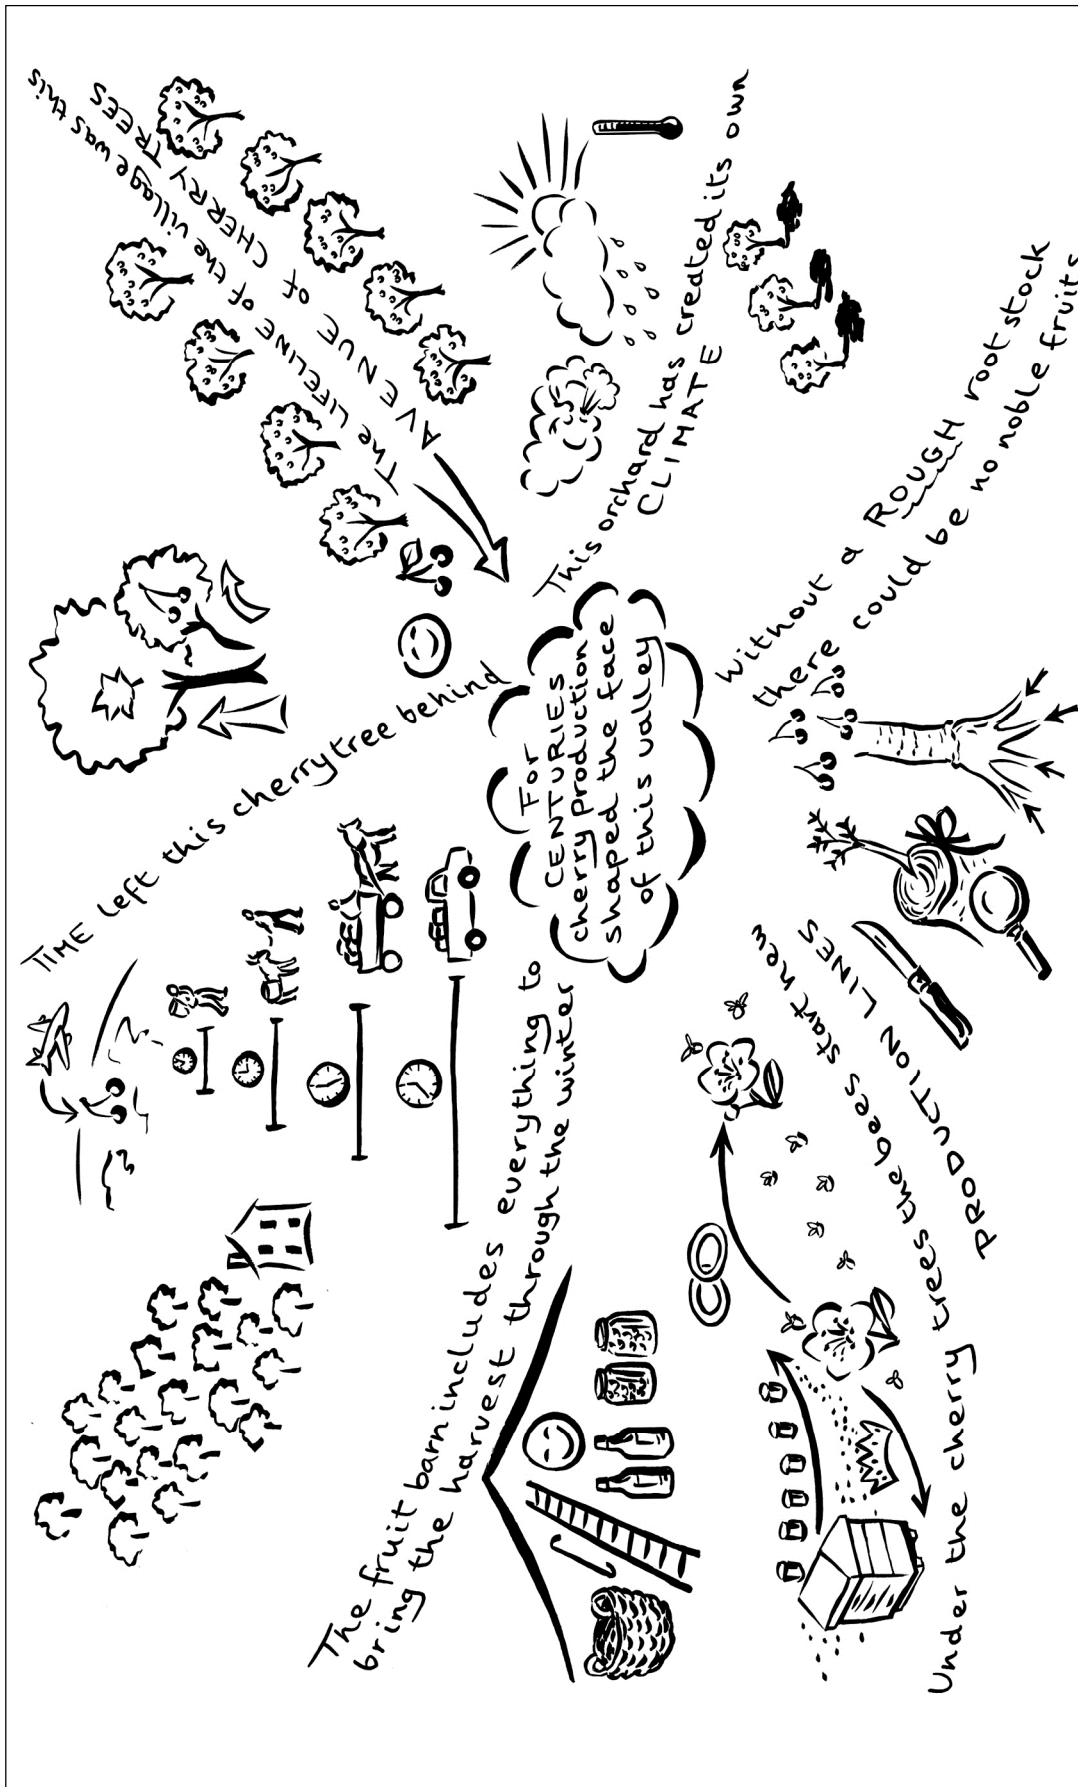 For
CENTURIES
cherry production
shaped the face
of this valley
The LIFELINE of the village was this
AVENUE of CHERRY TREES
This orchard has created its own
CLIMATE
Without a ROUGH root stock
there could be no noble fruits
Under the cherry trees the bees start new
PRODUCTION LINES
The fruit barn includes everything to
bring the harvest through the winter
TIME left this cherrytree behind